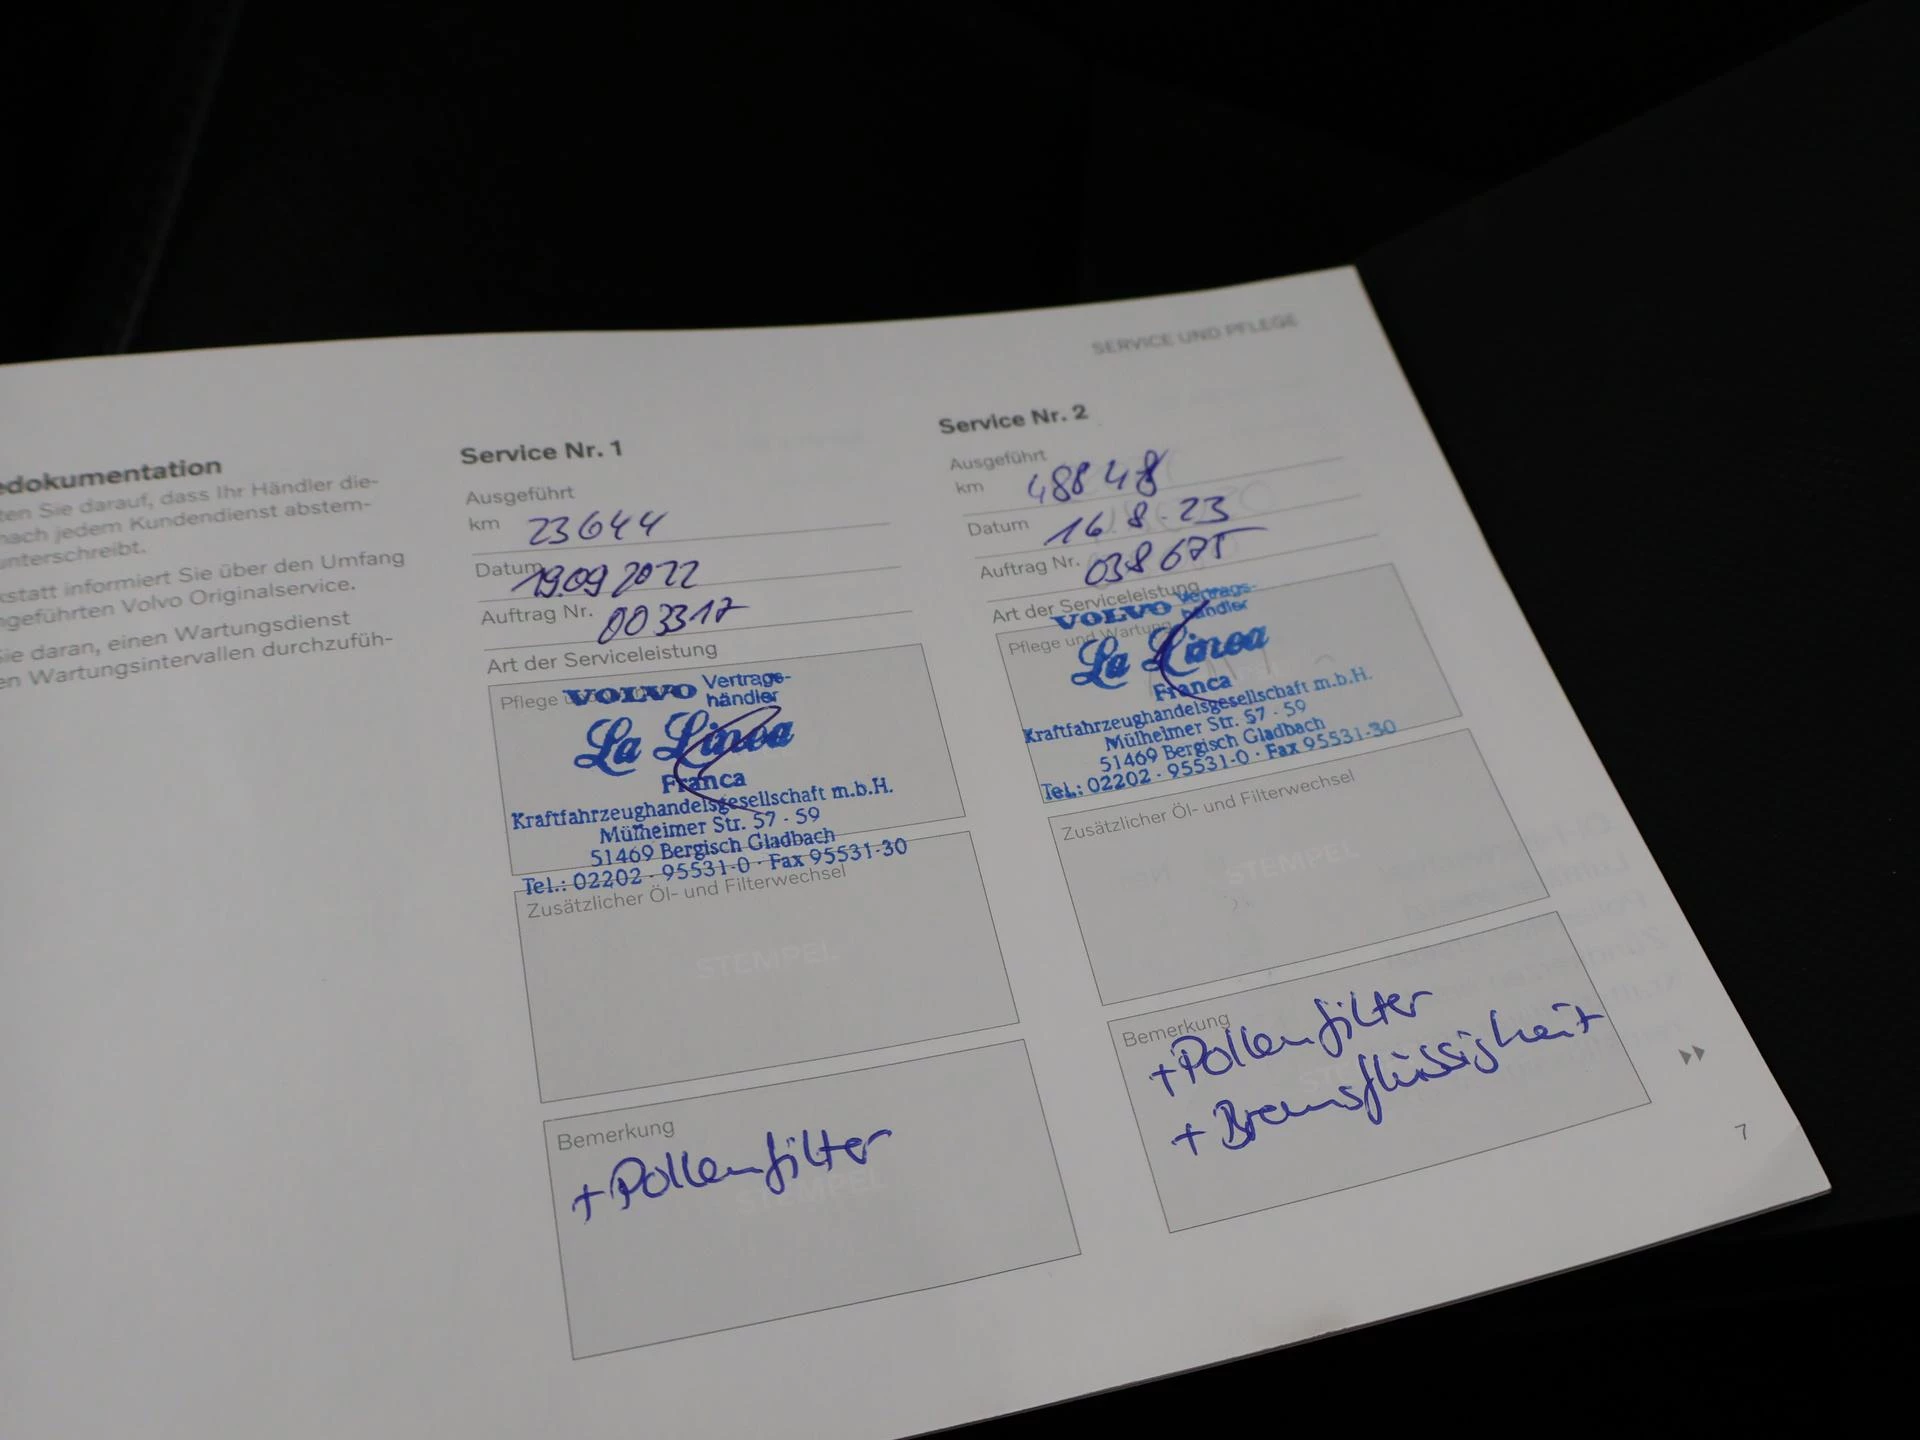 SERVICE UND PFLEGE
edokumentation
ten Sie darauf, dass Ihr Händler die-
nach jedem Kundendienst abstem-
unterschreibt.
kstatt informiert Sie über den Umfang
ngeführten Volvo Originalservice.
Sie daran, einen Wartungsdienst
en Wartungsintervallen durchzufüh-
Service Nr. 1
Ausgeführt
km 23644
Datum 19.09.2022
Auftrag Nr. 003317
Art der Serviceleistung
Pflege
VOLVO Vertrags-
händler
La Linea
Franca
Kraftfahrzeughandelsgesellschaft m.b.H.
Mülheimer Str. 57 - 59
51469 Bergisch Gladbach
Tel.: 02202 - 95531-0 · Fax 95531-30
Zusätzlicher Öl- und Filterwechsel
STEMPEL
Bemerkung
+ Pollenfilter
STEMPEL
Service Nr. 2
Ausgeführt
km 48848
Datum 16.8.23
Auftrag Nr. 038675
Art der Serviceleistung
VOLVO Vertrags-
händler
Pflege und Wartung
La Linea
Franca
Kraftfahrzeughandelsgesellschaft m.b.H.
Mülheimer Str. 57 - 59
51469 Bergisch Gladbach
Tel.: 02202 - 95531-0 · Fax 95531-30
Zusätzlicher Öl- und Filterwechsel
STEMPEL
Bemerkung
+ Pollenfilter
+ Bremsflüssigkeit
7